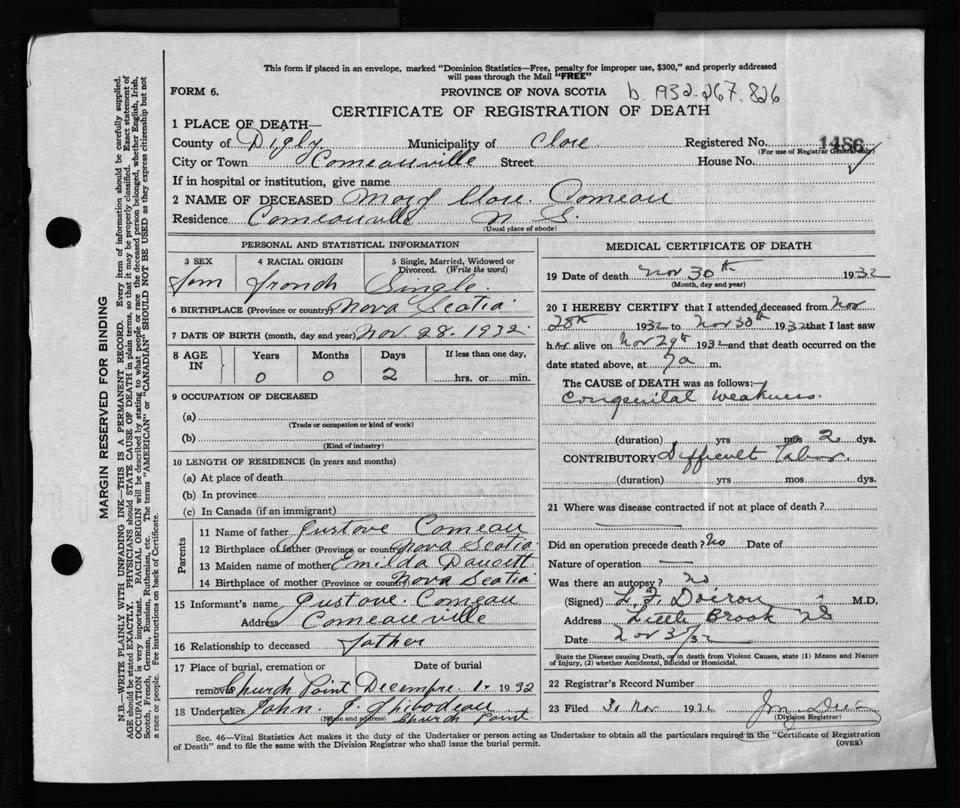 This form if placed in an envelope, marked "Dominion Statistics—Free, penalty for improper use, $300," and properly addressed
will pass through the Mail "FREE"
FORM 6. PROVINCE OF NOVA SCOTIA b. 1932.267.826
CERTIFICATE OF REGISTRATION OF DEATH
1 PLACE OF DEATH—
County of Digby Municipality of Clare Registered No. 1486
(For use of Registrar General only)
City or Town Comeauville Street House No.
If in hospital or institution, give name
2 NAME OF DECEASED Mary Clare Comeau
Residence Comeauville N S.
(Usual place of abode)
PERSONAL AND STATISTICAL INFORMATION
3 SEX 4 RACIAL ORIGIN 5 Single, Married, Widowed or
Divorced. (Write the word)
Fem French Single
6 BIRTHPLACE (Province or country) Nova Scotia
7 DATE OF BIRTH (month, day and year) Nov. 28. 1932
8 AGE IN Years Months Days If less than one day,
0 0 2 hrs. or min.
9 OCCUPATION OF DECEASED
(a)
(Trade or occupation or kind of work)
(b)
(Kind of industry)
10 LENGTH OF RESIDENCE (in years and months)
(a) At place of death
(b) In province
(c) In Canada (if an immigrant)
Parents
11 Name of father Gustave Comeau
12 Birthplace of father (Province or country) Nova Scotia
13 Maiden name of mother Emilda Doucett
14 Birthplace of mother (Province or country) Nova Scotia
15 Informant's name Gustave Comeau
Address Comeauville
16 Relationship to deceased father
17 Place of burial, cremation or Date of burial
removal Church Point Decembre 1. 1932
18 Undertaker John. J. Thibodeau
(Name and address) Church Point
MEDICAL CERTIFICATE OF DEATH
19 Date of death Nov 30th 1932
(Month, day and year)
20 I HEREBY CERTIFY that I attended deceased from Nov
28th 1932 to Nov 30th 1932 that I last saw
her alive on Nov 29th 1932 and that death occurred on the
date stated above, at 7a m.
The CAUSE of DEATH was as follows:—
Congenital Weakness.
(duration) yrs mos 2 dys.
CONTRIBUTORY Difficult Labour.
(duration) yrs mos dys.
21 Where was disease contracted if not at place of death?
Did an operation precede death? No Date of
Nature of operation —
Was there an autopsy? No
(Signed) L. F. Doiron M.D.
Address Little Brook NS
Date Nov 30/32
State the Disease causing Death, or in death from Violent Causes, state (1) Means and Nature
of Injury, (2) whether Accidental, Suicidal or Homicidal.
22 Registrar's Record Number
23 Filed 30 Nov 1932
(Division Registrar)
Sec. 46—Vital Statistics Act makes it the duty of the Undertaker or person acting as Undertaker to obtain all the particulars required in the "Certificate of Registration
of Death" and to file the same with the Division Registrar who shall issue the burial permit. (OVER)
MARGIN RESERVED FOR BINDING
N.B.—WRITE PLAINLY WITH UNFADING INK—THIS IS A PERMANENT RECORD. Every item of information should be carefully supplied.
AGE should be stated EXACTLY. PHYSICIANS should STATE CAUSE OF DEATH in plain terms, so that it may be properly classified. Exact statement of
OCCUPATION is very important. RACIAL ORIGIN will be described by stating to what people or race the deceased person belonged, whether English, Irish,
Scotch, French, German, Russian, Ruthenian, etc. The terms "AMERICAN" or "CANADIAN" SHOULD NOT BE USED as they express citizenship but not
a race or people. Fee instructions on back of Certificate.